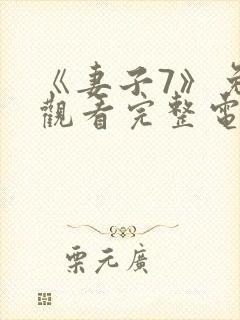 《妻子7》免
觀看完整電
栗元廣